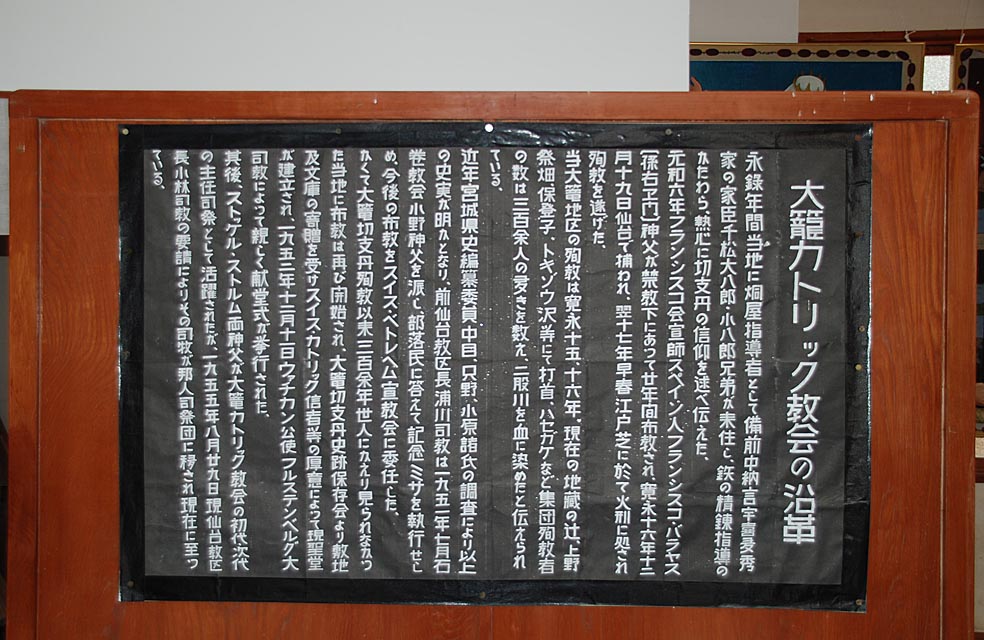 大籠カトリック教会の沿革
永錄年間、当地に烔屋指導者として備前中納言宇喜多秀
家の家臣千松大八郎・小八郎兄弟が来住し、鉄の精錬指導の
かたわら、熱心に切支丹の信仰を述べ伝えた。
元和六年フランシスコ会宣師スペイン人フランシスコ・バラヤス
(孫右ヱ門)神父が禁教下にあって廿年间布教され、寛永十六年十二
月十九日仙台で捕われ、翌十七年早春、江戸芝に於て火刑に処され
殉教を遂げた。
当大篭地区の殉教は寛永十五、十六年、現在の地蔵の辻、上野
祭畑、保登子、トキゾウ沢等にて打首、ハセガケなど集団殉教者
の数は三百余人の多きを数え、二股川を血に染めたと伝えられ
ている。
近年宮城県史編纂委員中目、只野、小原諸氏の調査により以上
の史実が明かとなり、前仙台教区長浦川司教は一九五一年七月石
巻教会小野神父を派し、部落民に答えて記念ミサを執行せし
め、今後の布教をスイス・ベトレヘム宣教会に委任した。
かくて大篭切支丹殉教以来三百余年世人にかえり見られなかっ
た当地に布教は再び開始され、大篭切支丹史跡保存会より敷地
及文庫の寄贈を受け、スイスカトリック信者等の厚意によって現聖堂
が建立され、一九五二年十二月十日ヴァチカン公使フルステンベルグ大
司教によって親しく献堂式が挙行された。
其後、ストッケル・ストルム両神父が大篭カトリック教会の初代次代
の主任司祭として活躍されたが、一九五五年八月廿九日現仙台教区
長小林司教の要請によりその司牧が邦人司祭団に移され現在に至っ
ている。